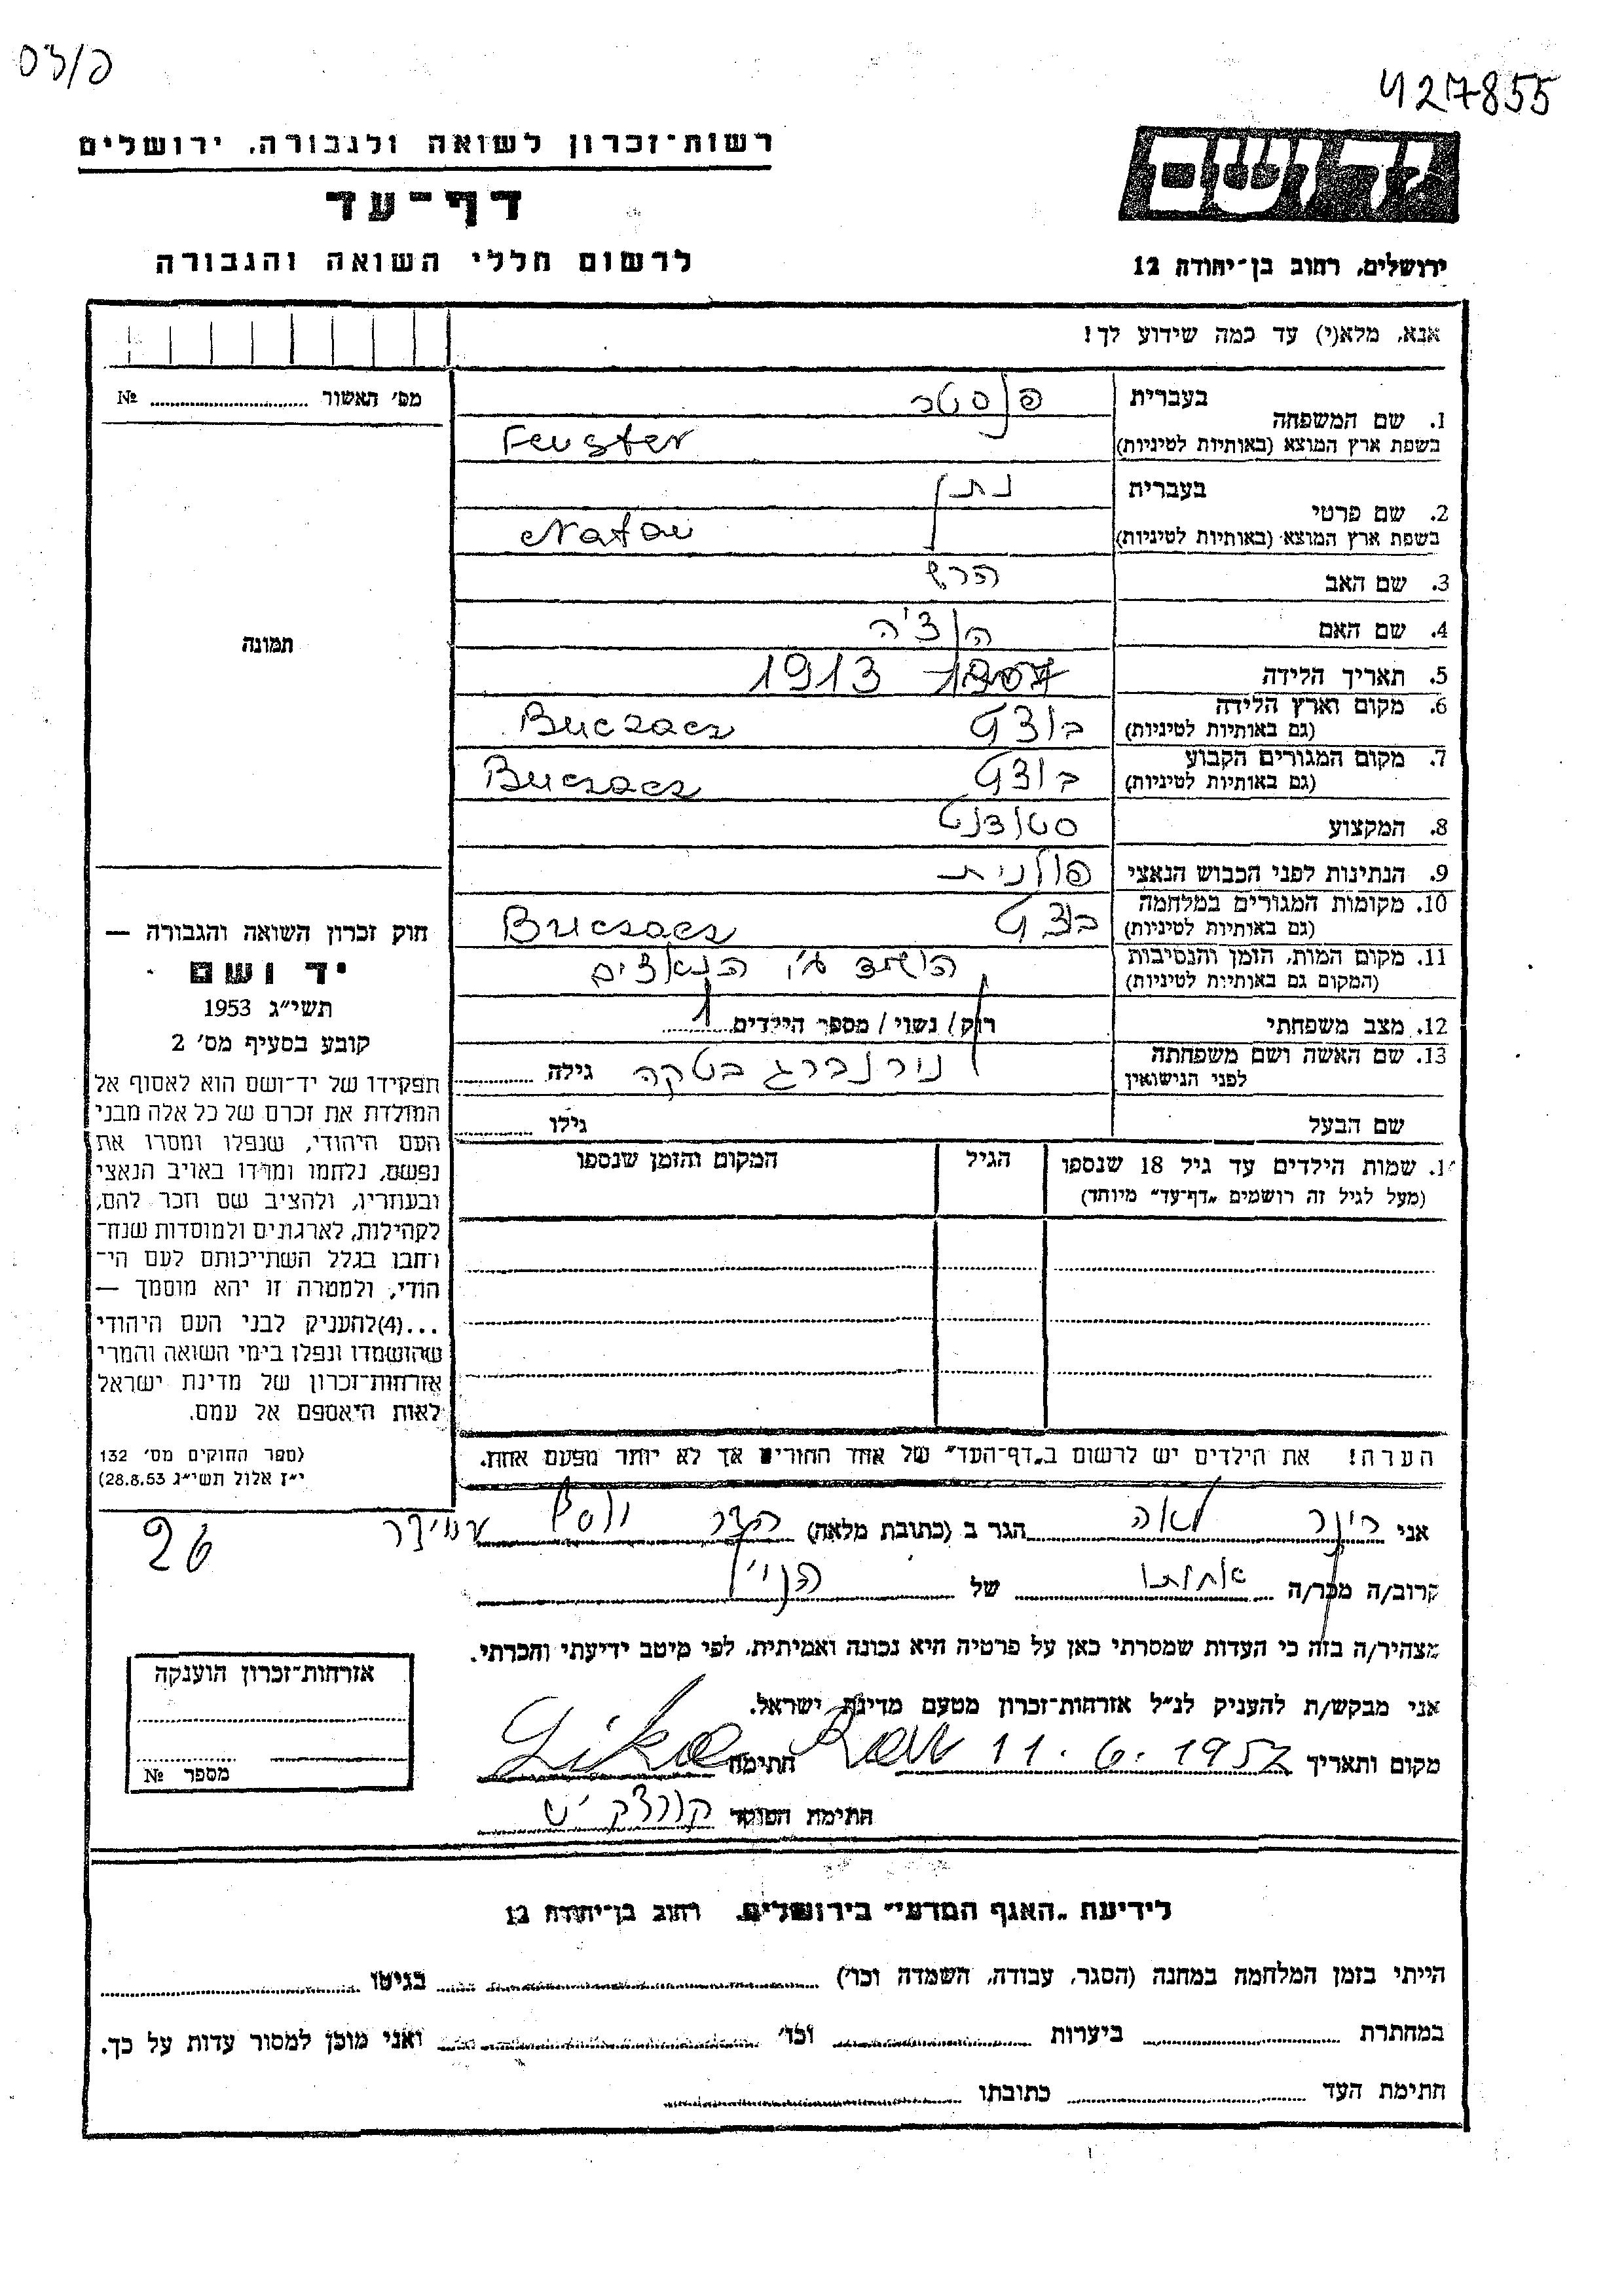 פ/לס
427855
רשות-זכרון לשואה ולגבורה, ירושלים
דף-עד
לרשום חללי השואה והגבורה
יד ושם
ירושלים, רחוב בן-יהודה 12
אנא, מלא(י) עד כמה שידוע לך!
מס' האשור ............ №
תמונה
חוק זכרון השואה והגבורה —
יד ושם
תשי"ג 1953
קובע בסעיף מס' 2
תפקידו של יד-ושם הוא לאסוף אל
המולדת את זכרם של כל אלה מבני
העם היהודי, שנפלו ומסרו את
נפשם, נלחמו ומרדו באויב הנאצי
ובעוזריו, ולהציב שם וזכר להם,
לקהילות, לארגונים ולמוסדות שנח-
רחבו בגלל השתייכותם לעם הי-
הודי, ולמטרה זו יהא מוסמך —
...(4)להעניק לבני העם היהודי
שהושמדו ונפלו בימי השואה והמרי
אזרחות-זכרון של מדינת ישראל
לאות היאספם אל עמם.
(ספר החוקים מס' 132
י"ז אלול תשי"ג 28.8.53)
בעברית פנסטר
1. שם המשפחה
בשפת ארץ המוצא (באותיות לטיניות) Fenster
בעברית נתן
2. שם פרטי
בשפת ארץ המוצא (באותיות לטיניות) Natan
3. שם האב הרש
4. שם האם הנצ'ה
5. תאריך הלידה 1907 1913
6. מקום וארץ הלידה
(גם באותיות לטיניות) Buczacz
7. מקום המגורים הקבוע
(גם באותיות לטיניות) Buczacz
8. המקצוע סטודנט
9. הנתינות לפני הכבוש הנאצי פולנית
10. מקומות המגורים במלחמה
(גם באותיות לטיניות) Buczacz
11. מקום המות, הזמן והנסיבות הושמד ע"י הנאצים
(המקום גם באותיות לטיניות)
12. מצב משפחתי רוק/ נשוי/ מספר הילדים 1
13. שם האשה ושם משפחתה נירנברג בטקה גילה
לפני הנישואין
שם הבעל גילו
14. שמות הילדים עד גיל 18 שנספו הגיל המקום והזמן שנספו
(מעל לגיל זה רושמים „דף-עד" מיוחד)
הערה! את הילדים יש לרשום ב„דף-העד" של אחד ההורים אך לא יותר מפעם אחת.
אני לאה הגר ב (כתובת מלאה) עמידר 26
קרוב/ה מכר/ה אחותו של הנ"ל
מצהיר/ה בזה כי העדות שמסרתי כאן על פרטיה היא נכונה ואמיתית, לפי מיטב ידיעתי והכרתי.
אני מבקש/ת להעניק לנ"ל אזרחות-זכרון מטעם מדינת ישראל.
מקום ותאריך 11.6.1957 חתימה
חתימת הפוקד
אזרחות-זכרון הוענקה
מספר №
לידיעת „האגף המדעי" בירושלים, רחוב בן-יהודה 12
הייתי בזמן המלחמה במחנה (הסגר, עבודה, השמדה וכו') ............ בגיטו ............
במחתרת ............ ביערות ............ וכו' ............ ואני מוכן למסור עדות על כך.
חתימת העד ............ כתובתו ............